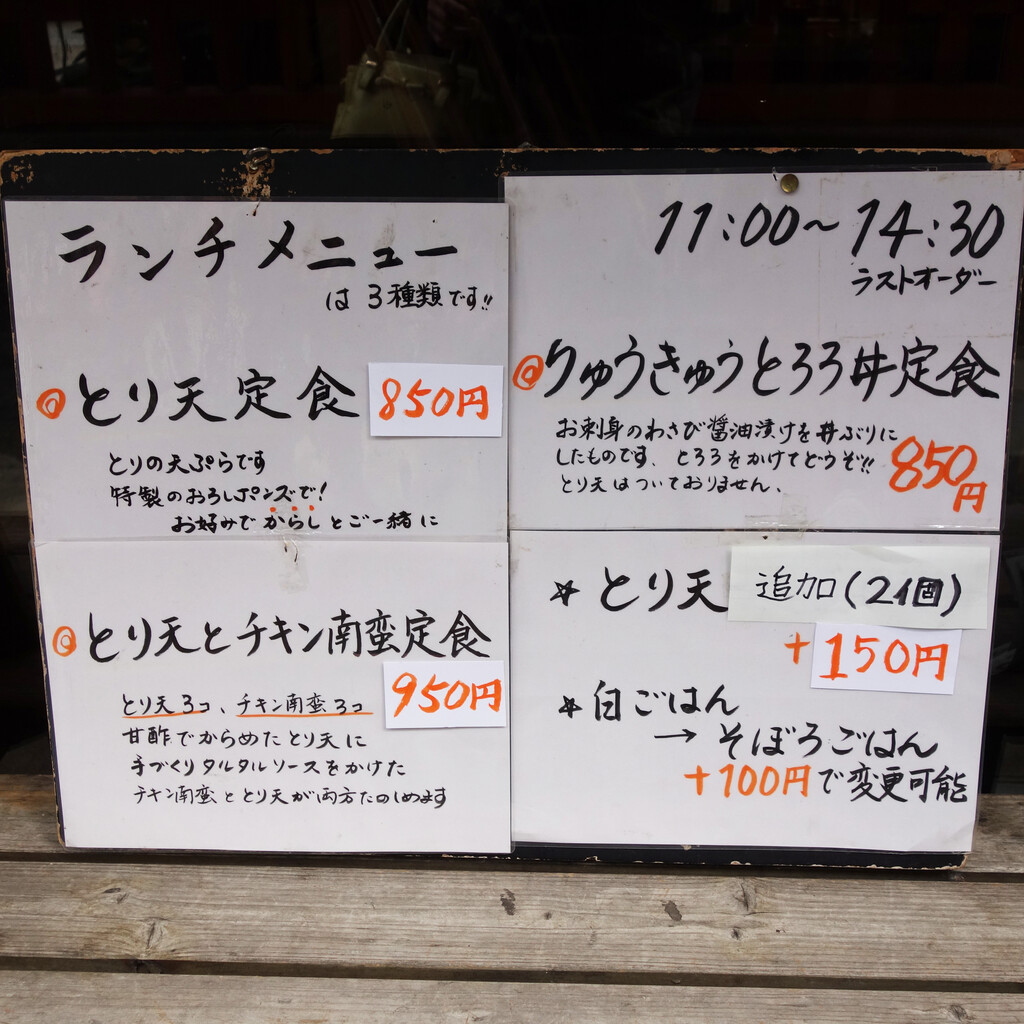 ランチメニュー
は3種類です!!
◎とり天定食 850円
とりの天ぷらです
特製のおろしポンズで!
お好みでからしとご一緒に
◎とり天とチキン南蛮定食
950円
とり天3コ、チキン南蛮3コ
甘酢でからめたとり天に
手づくりタルタルソースをかけた
チキン南蛮ととり天が両方たのしめます
11:00~14:30
ラストオーダー
◎りゅうきゅうとろろ丼定食
お刺身のわさび醤油漬けを丼ぶりに
したものです、とろろをかけてどうぞ!!
とり天はついておりません、
850円
☆とり天追加(2個)
+150円
☆白ごはん
→そぼろごはん
+100円で変更可能